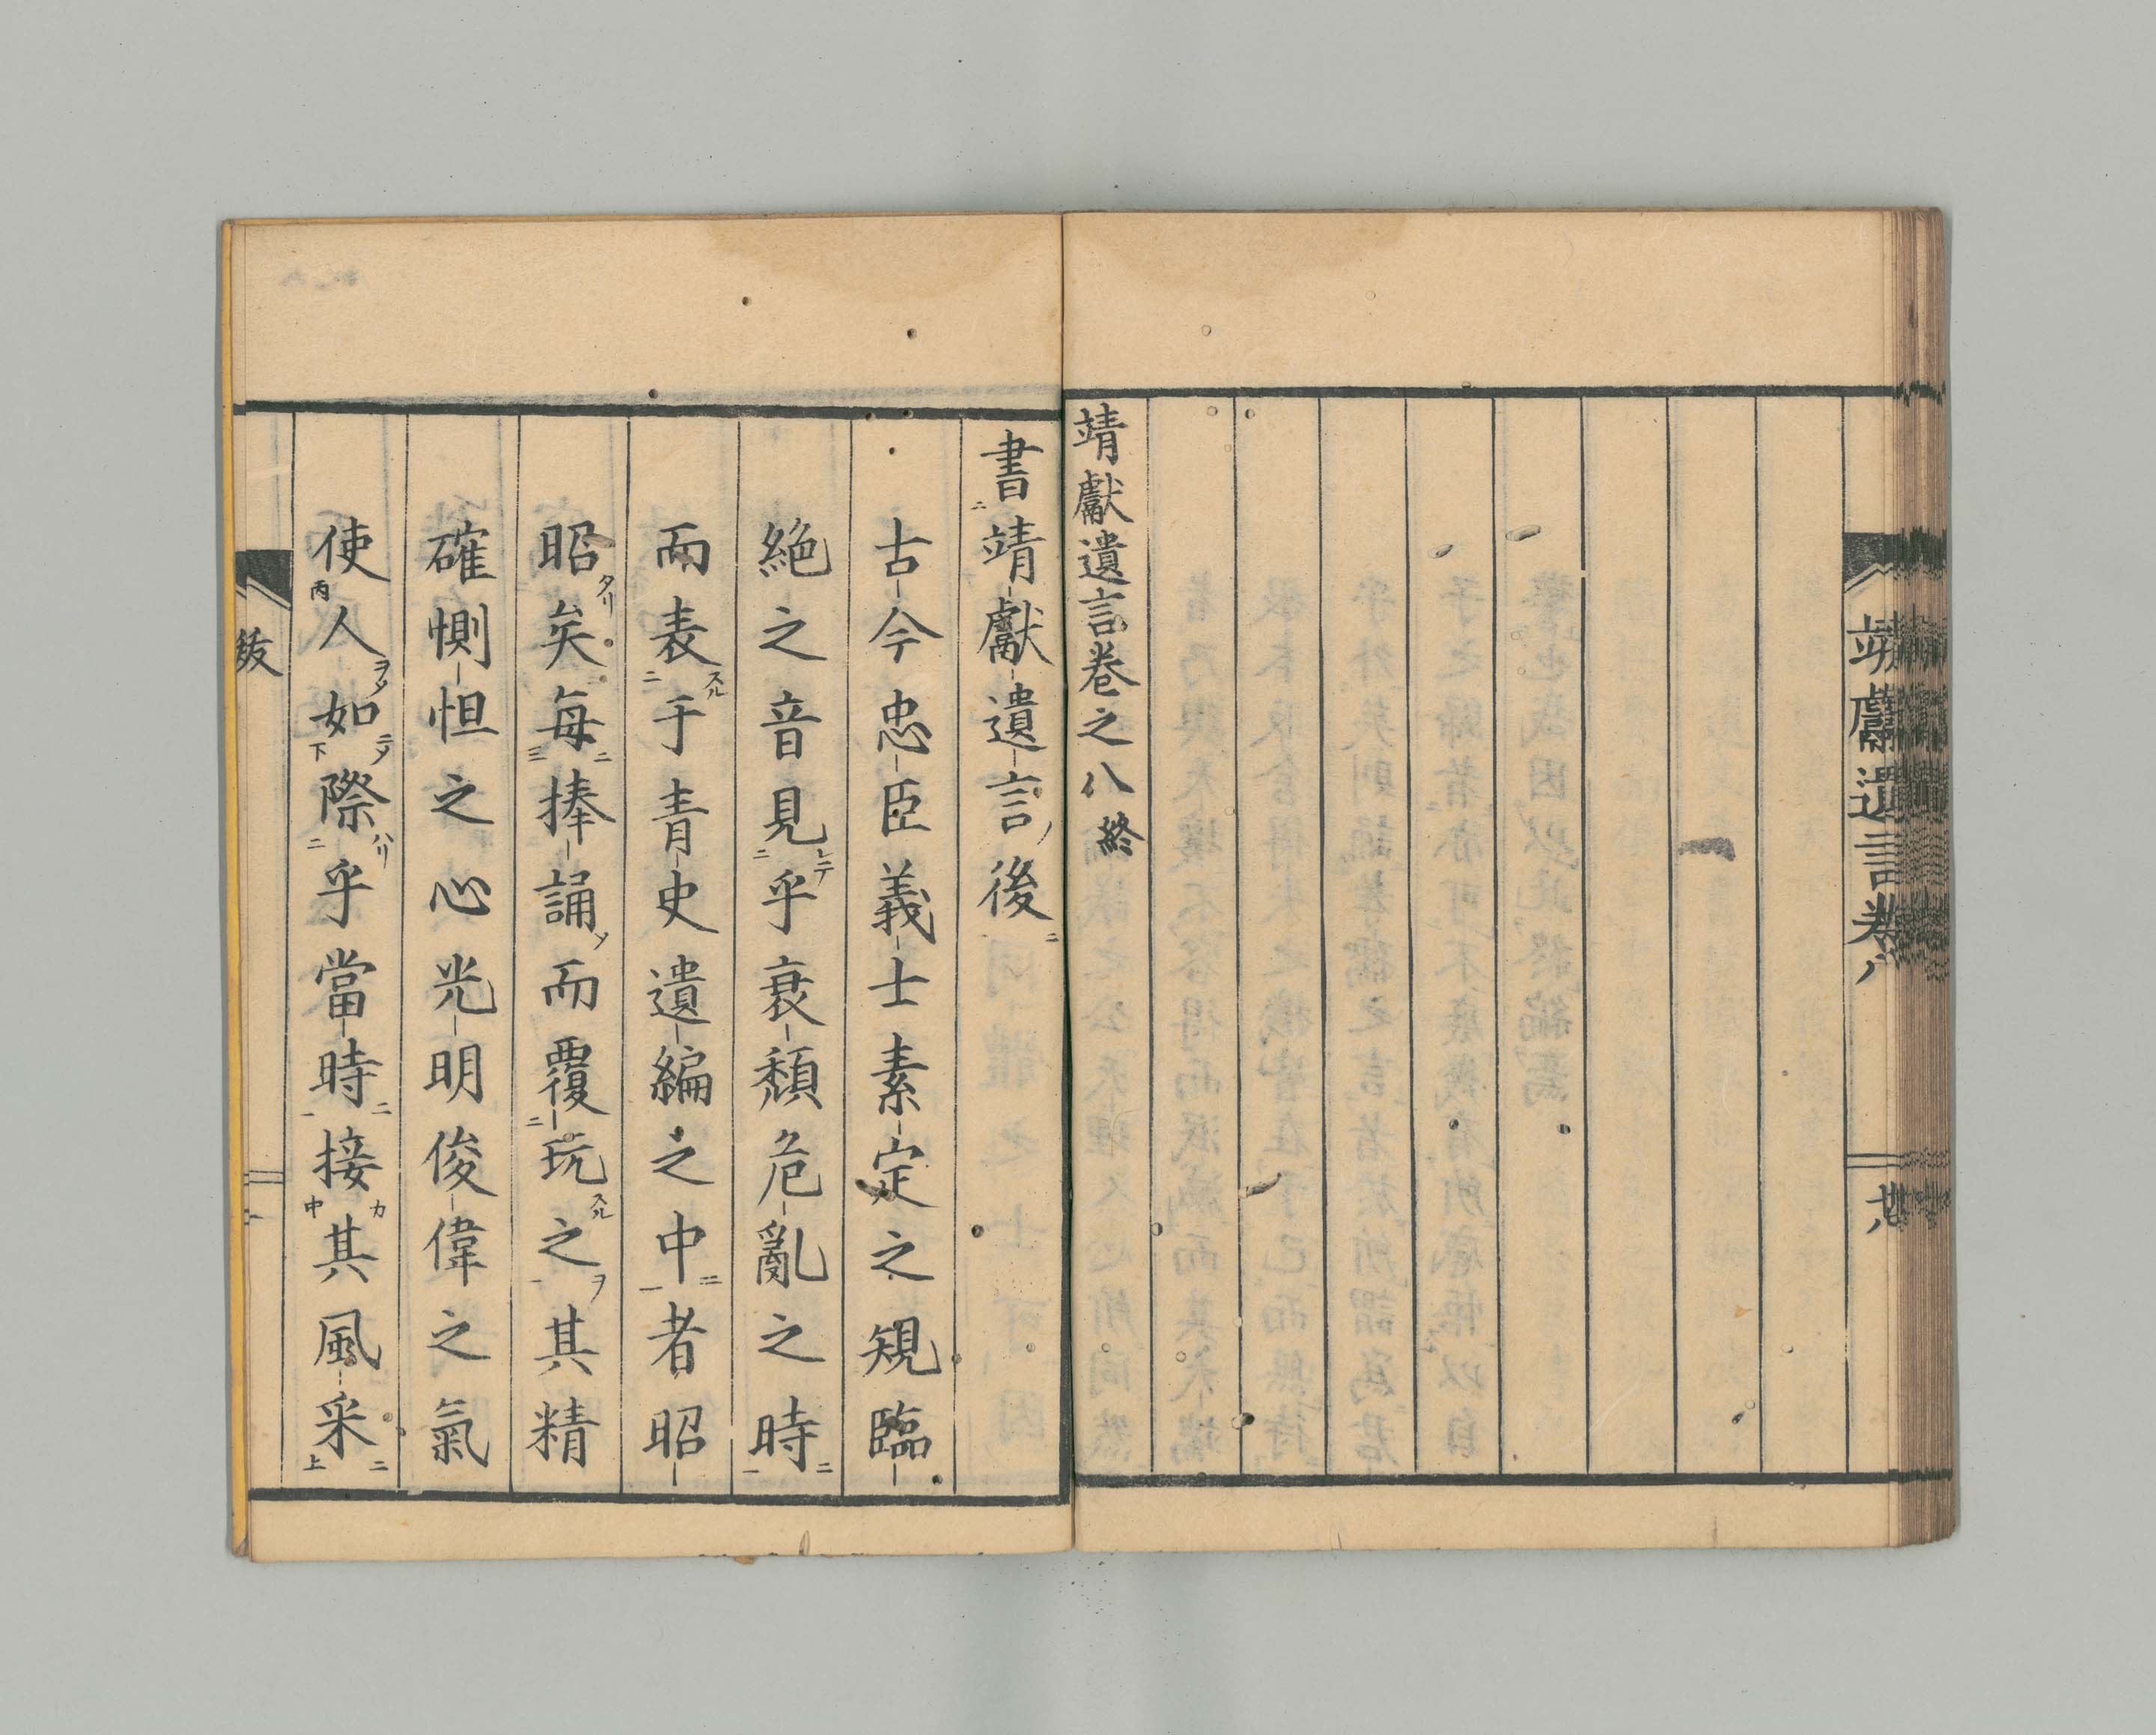 靖獻遺言卷八
靖獻遺言卷之八終
書靖獻遺言後
古今忠臣義士素定之規臨
絶之音見乎衰頽危亂之時
而表于青史遺編之中者昭
昭矣每捧誦而覆玩之其精
確惻怛之心光明俊偉之氣
使人如際乎當時接其風采
跋